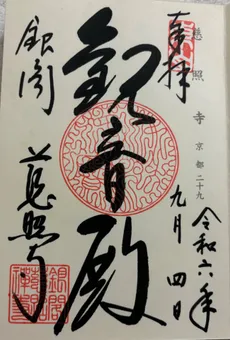 奉拝
慈照寺 京都二十九
令和六年
九月四日
観音殿
銀閣
慈照寺